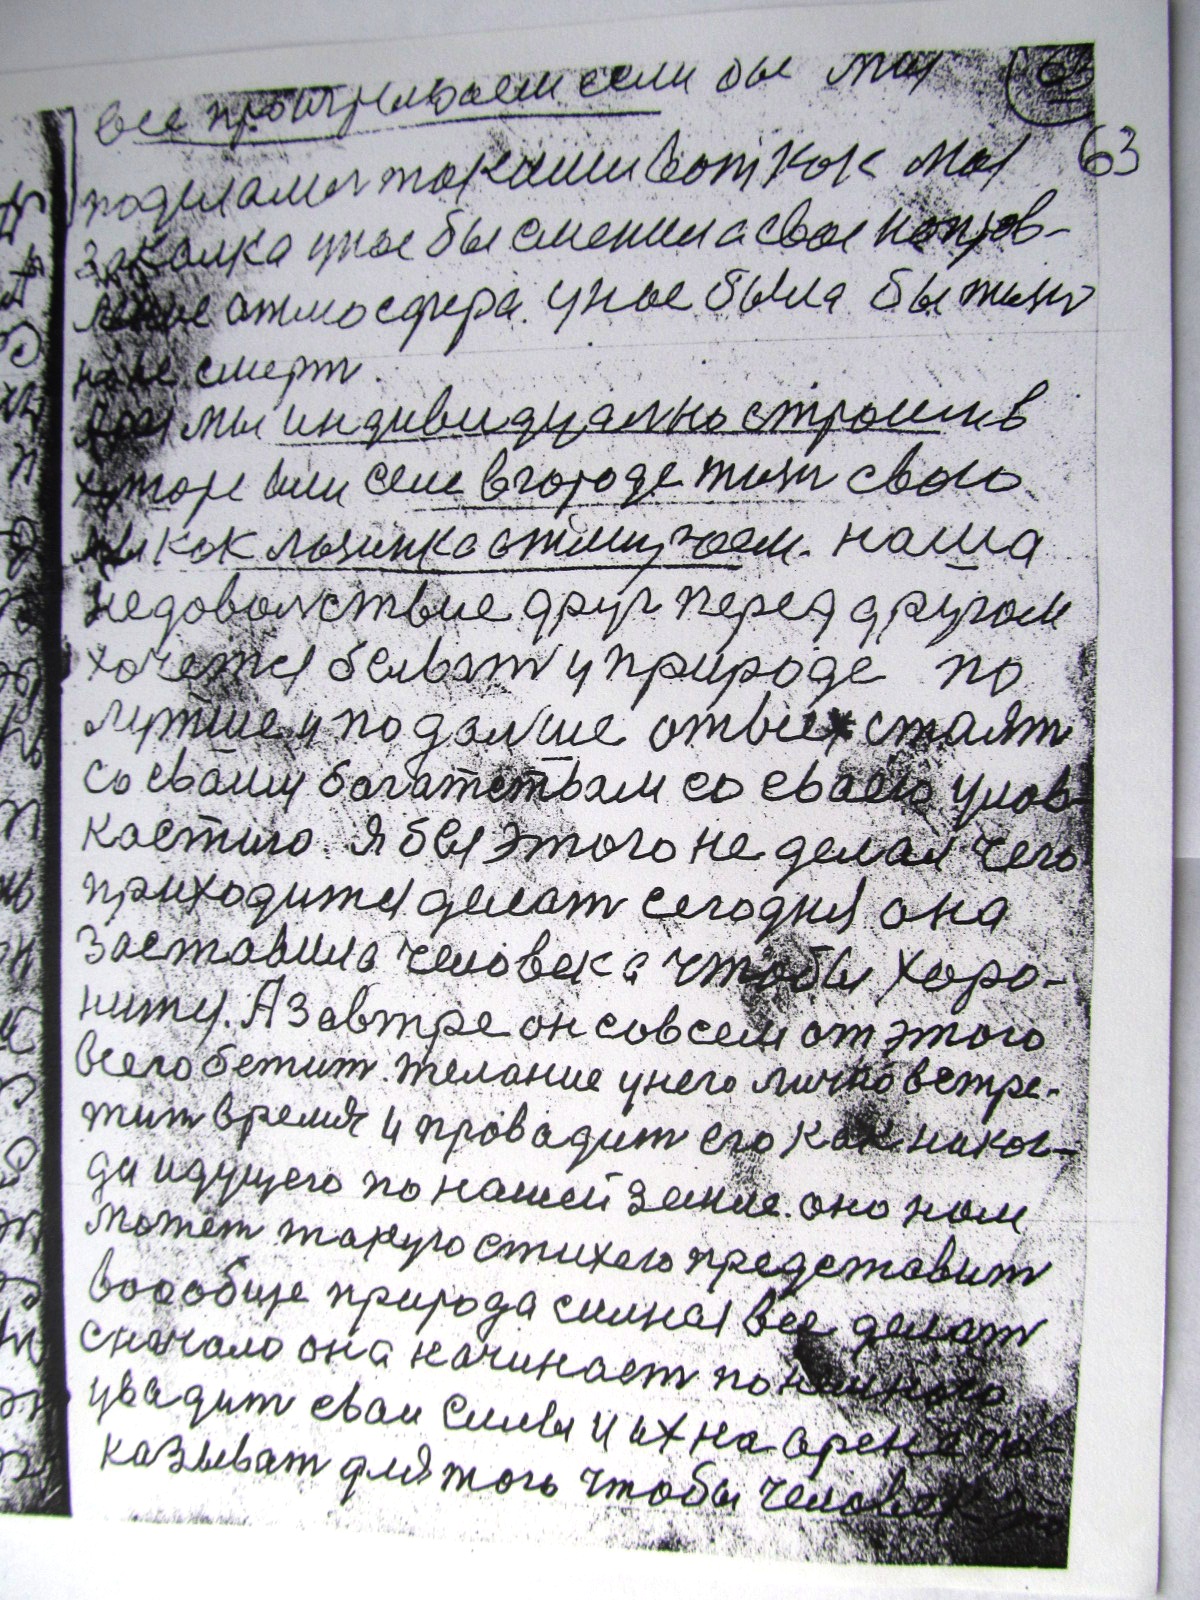 63
все проигриваем если бы мы
63
поделались такими вот как моя
закалка у нас бы сменила свое направ-
ление атмосфера. у нас была бы жизн
на не смерт
Ноя мы индивидуално строим в
хуторе или селе в городе жизн свою
мы как лизинка отмучаем. наша
недоволствие друг перед другом
хочется быват у природе по
лутше и подалше от всех стаят
со сваими богатствам со сваею улов-
кастию. Я бы этого не делал чего
приходится делат сегодня она
заставила человека чтобы хоро-
нится. А завтре он совсем от этого
всего бежит. желание у него лично встре-
тит время и провадит его как никог-
да идущего по нашей земле. оно нам
может такую стихею представит
воообще природа силная все делат
сначало она начинает понемного
увадит сваи силы и их на арена по-
казыват для тогь чтобы человек